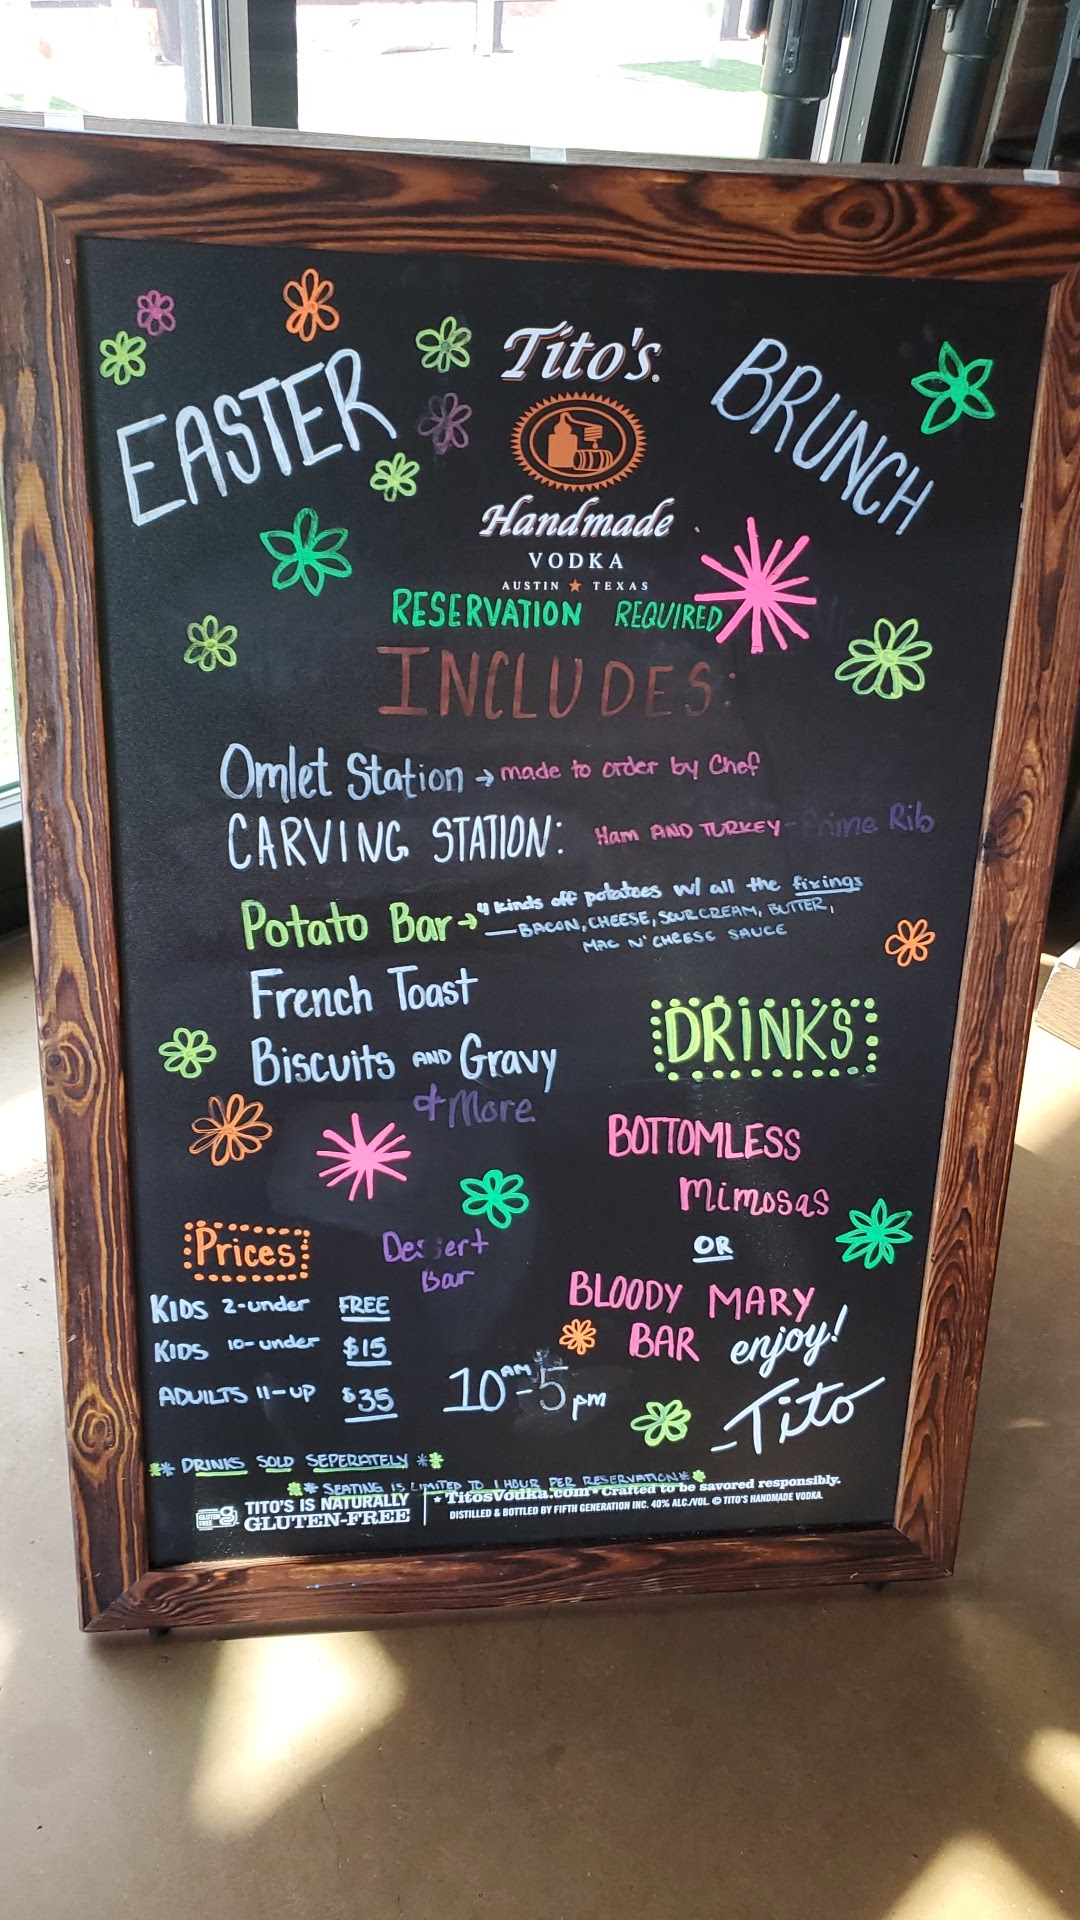 Tito's
EASTER
BRUNCH
Handmade
VODKA
AUSTIN ★ TEXAS
RESERVATION REQUIRED
INCLUDES:
Omlet Station → made to order by Chef
CARVING STATION: Ham AND TURKEY - Prime Rib
Potato Bar → 4 kinds off potatoes w/ all the fixings
— BACON, CHEESE, SOUR CREAM, BUTTER,
MAC N' CHEESE SAUCE
French Toast
Biscuits AND Gravy
& More
DRINKS
BOTTOMLESS
Mimosas
OR
BLOODY MARY
BAR
enjoy!
-Tito
Dessert
Bar
Prices
KIDS 2-under FREE
KIDS 10-under $15
ADUILTS 11-UP $35
10 AM - 5 pm
** DRINKS SOLD SEPERATELY **
** SEATING IS LIMITED TO 1 HOUR PER RESERVATION **
GLUTEN FREE
TITO'S IS NATURALLY
GLUTEN-FREE
★ TitosVodka.com • Crafted to be savored responsibly.
DISTILLED & BOTTLED BY FIFTH GENERATION INC. 40% ALC./VOL. © TITO'S HANDMADE VODKA.